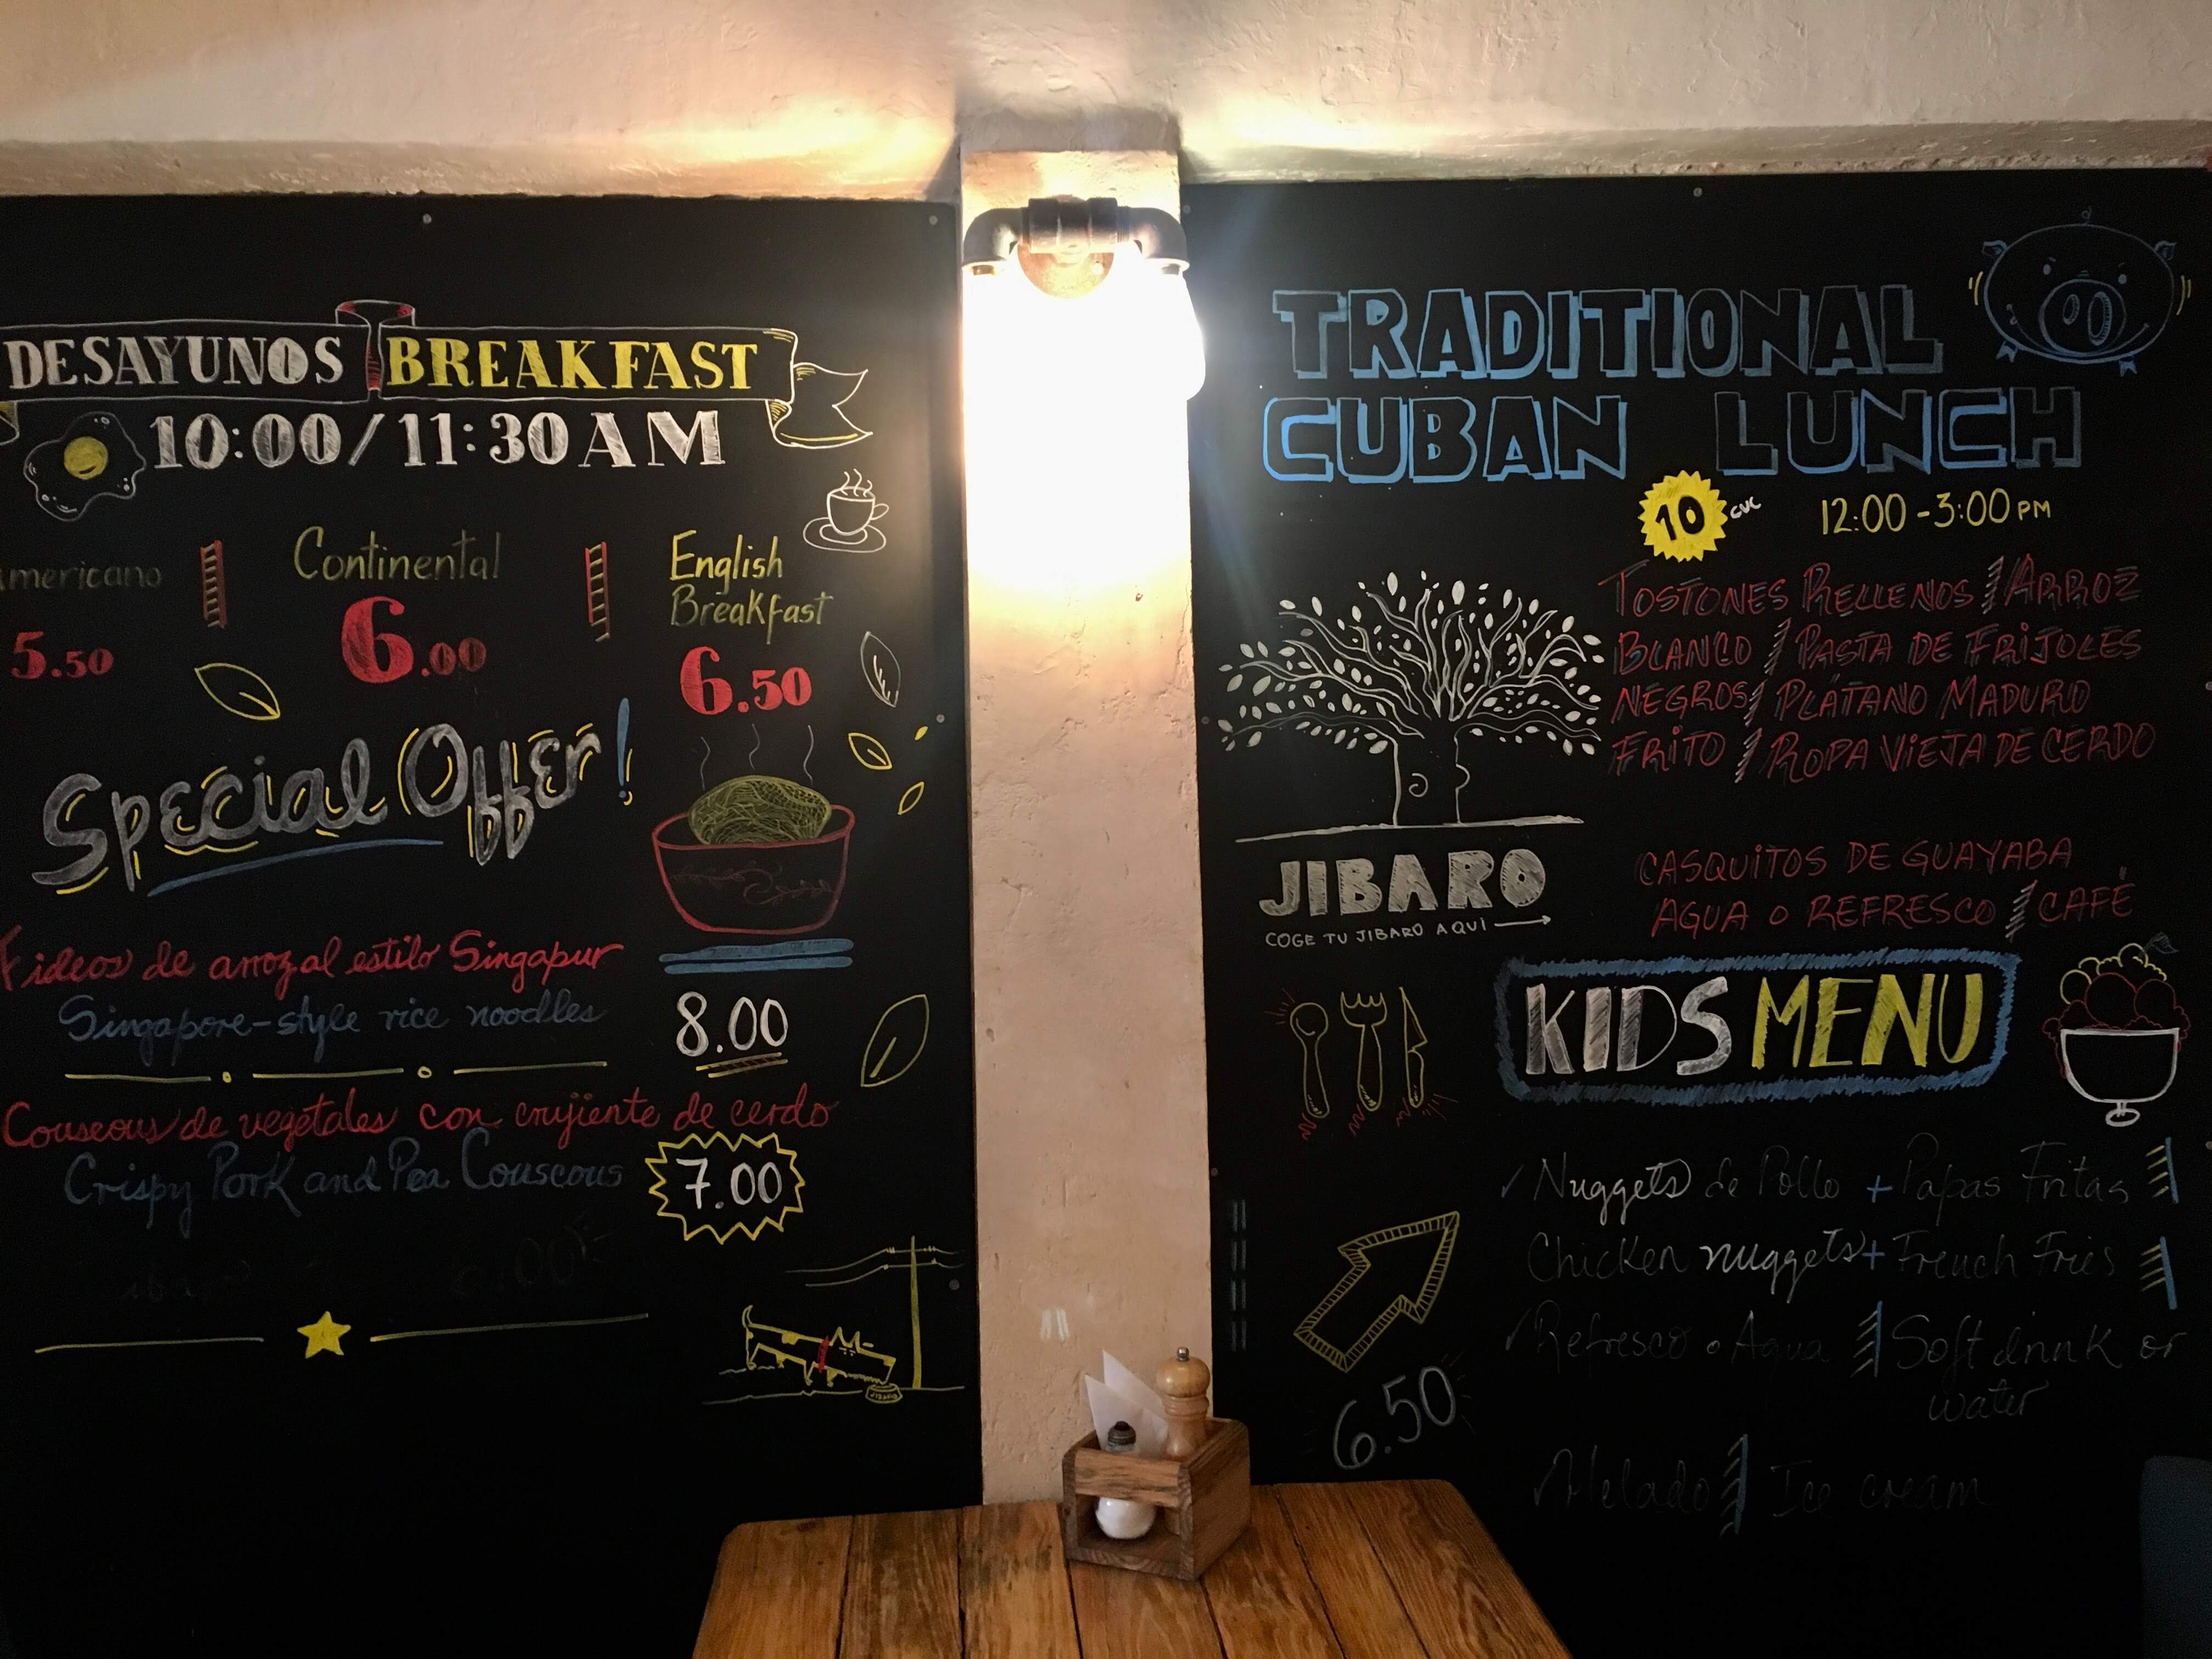 DESAYUNOS BREAKFAST
10:00/11:30 AM
mericano
Continental
English
Breakfast
5.50
6.00
6.50
Special Offer!
Fideos de arroz al estilo Singapur
Singapore-style rice noodles
8.00
Couscous de vegetales con crujiente de cerdo
Crispy Pork and Pea Couscous
7.00
TRADITIONAL
CUBAN LUNCH
10 CUC
12:00-3:00 PM
TOSTONES RELLENOS / ARROZ
BLANCO / PASTA DE FRIJOLES
NEGROS / PLÁTANO MADURO
FRITO / ROPA VIEJA DE CERDO
JIBARO
COGE TU JIBARO AQUI
CASQUITOS DE GUAYABA
AGUA O REFRESCO / CAFÉ
KIDS MENU
Nuggets de Pollo + Papas Fritas
Chicken nuggets + French Fries
Refresco o Agua / Soft drink or
water
6.50
Helado / Ice cream